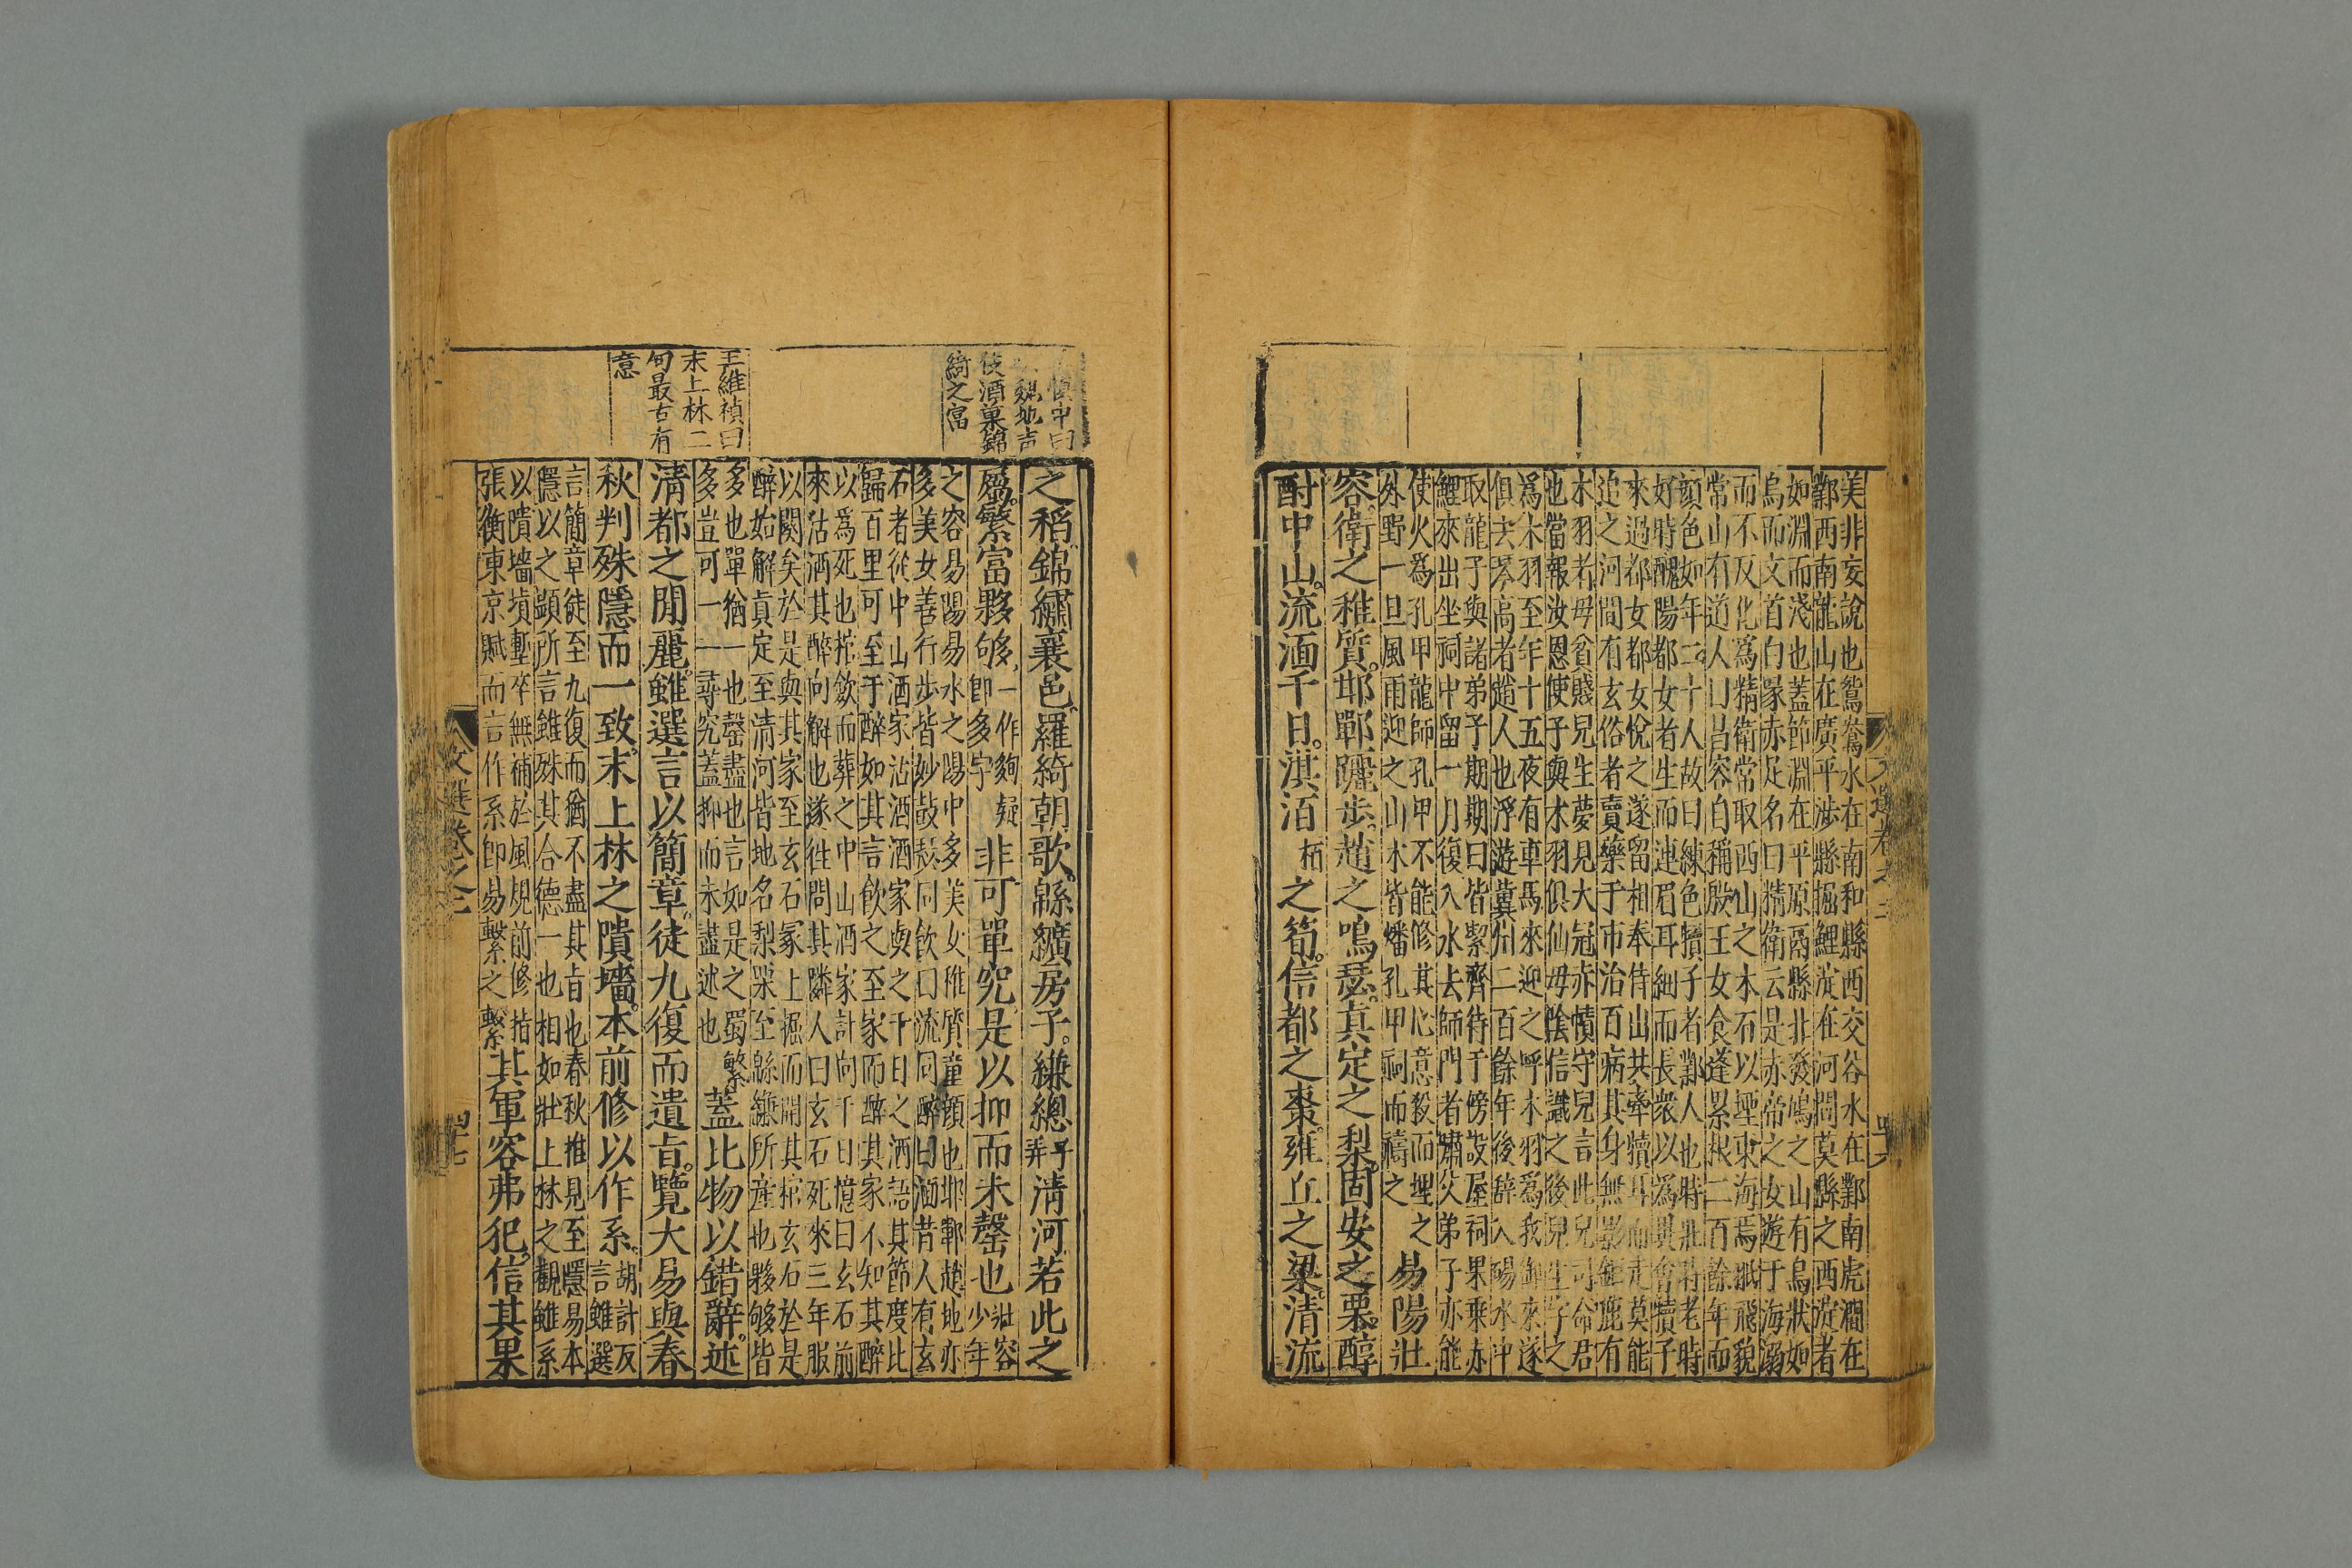 美非妄說也鴛鴦水在南和縣西交谷水在鄴南虎澗在
鄴西南龍山在廣平渉縣掘鯉淀在河間莫縣之西淀者
如淵而淺也蓋節淵在平原鬲縣北發鳩之山有鳥狀如
烏而文首白喙赤足名曰精衛云是赤帝之女遊于海溺
而不反化爲精衛常取西山之木石以堙東海焉
常山有道人曰昌容自稱殷王女食蓬累根二百餘年而
顔色如年二十人故曰練色犢子者鄴人也時壯時老時
好時醜陽都女者生而連眉耳細而長衆以爲異會犢子
來過都女都女悅之遂留相奉侍出共牽犢耳而走莫能
追之河間有玄俗者賣藥于市治百病其身無影
木羽者母貧賤兒生夢見大冠赤幘守兒言此兒司命君
也當報汝恩使子與木羽俱仙母陰信識之後兒生字之
爲木羽至年十五夜有車馬來迎之呼木羽爲我御來遂
俱去琴高者趙人也浮遊冀州二百餘年後辭入碭水中
取龍子與諸弟子期期曰皆潔齊待于傍設屋祠果乘赤
鯉來出坐祠中留一月復入水去師門者嘯父弟子亦能
使火爲孔甲龍師孔甲不能修其心意殺而埋之
外野一旦風雨迎之山木皆燔孔甲祠而禱之
易陽壯
容衛之稚質邯鄲躧步趙之鳴瑟真定之梨固安之栗醇
酎中山流湎千日淇洹之筍信都之棗雍丘之粱清流
之稻錦繡襄邑羅綺朝歌緜纊房子縑總清河若此之
屬繁富夥够一作夠疑
即多字
非可單究是以抑而未罄也壯容
少年
之容易陽易水之陽中多美女稚質童顔也邯鄲趙地亦
多美女善行步皆妙鼓瑟同飲曰流同醉曰湎昔人有玄
石者從中山酒家沽酒酒家與之千日之酒語其節度比
歸百里可至于醉如其言飲之至家而醉其家不知其醉
以爲死也棺歛而葬之中山酒家計向千日憶曰玄石前
來沽酒其醉向解也遂往問其隣人曰玄石死來三年服
以闋矣於是與其家至玄石冢上掘而開其棺玄石於是
醉始解真定至清河皆地名梨栗至緜縑所產也夥够皆
多也單猶一也罄盡也言如是之蜀繁
多豈可一一尋究蓋抑而未盡述也
蓋比物以錯辭述
清都之閒麗雖選言以簡章徒九復而遺旨覽大易與春
秋判殊隱而一致末上林之隤墻本前修以作系胡計反
言雖選
言簡章徒至九復而猶不盡其旨也春秋推見至隱易本
隱以之顯所言雖殊其合德一也相如壯上林之觀雖系
以隤墻塡塹卒無補於風規前修指
張衡東京賦而言作系即易繫之繫
其軍容弗犯信其果
魏地声
使酒菓錦
綺之富
王維禎曰
末上林二
句最古有
意
文選卷之三
四十七